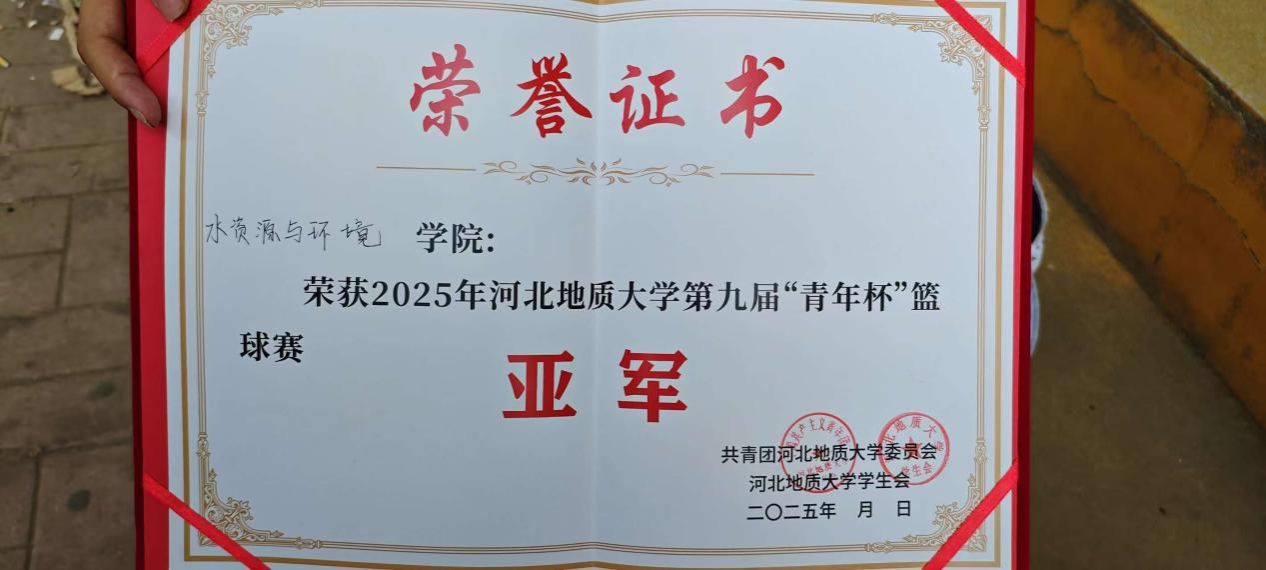 荣誉证书
水资源与环境 学院：
荣获2025年河北地质大学第九届“青年杯”篮
球赛
亚军
共青团河北地质大学委员会
河北地质大学学生会
二〇二五年 月 日